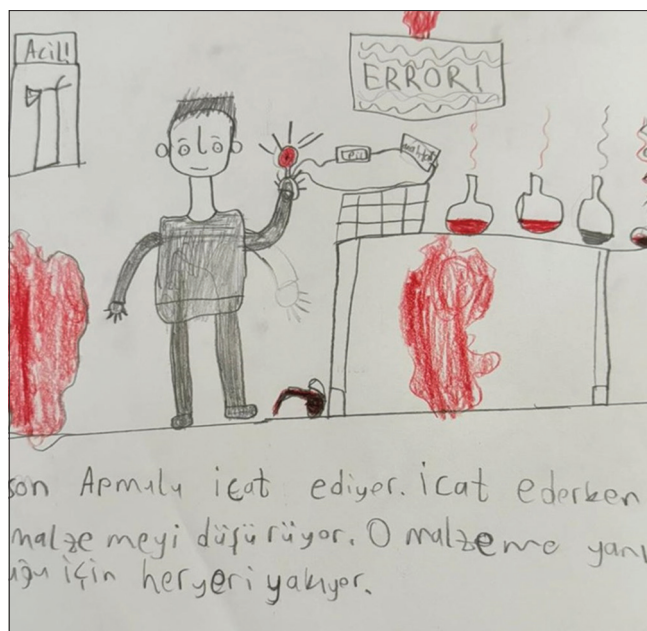 Acil!
ERROR!
son Apmulu icat ediyer. icat ederken
malze meyi düşürüyor. O malzeme yanı
uğu için heryeri yakıyor.